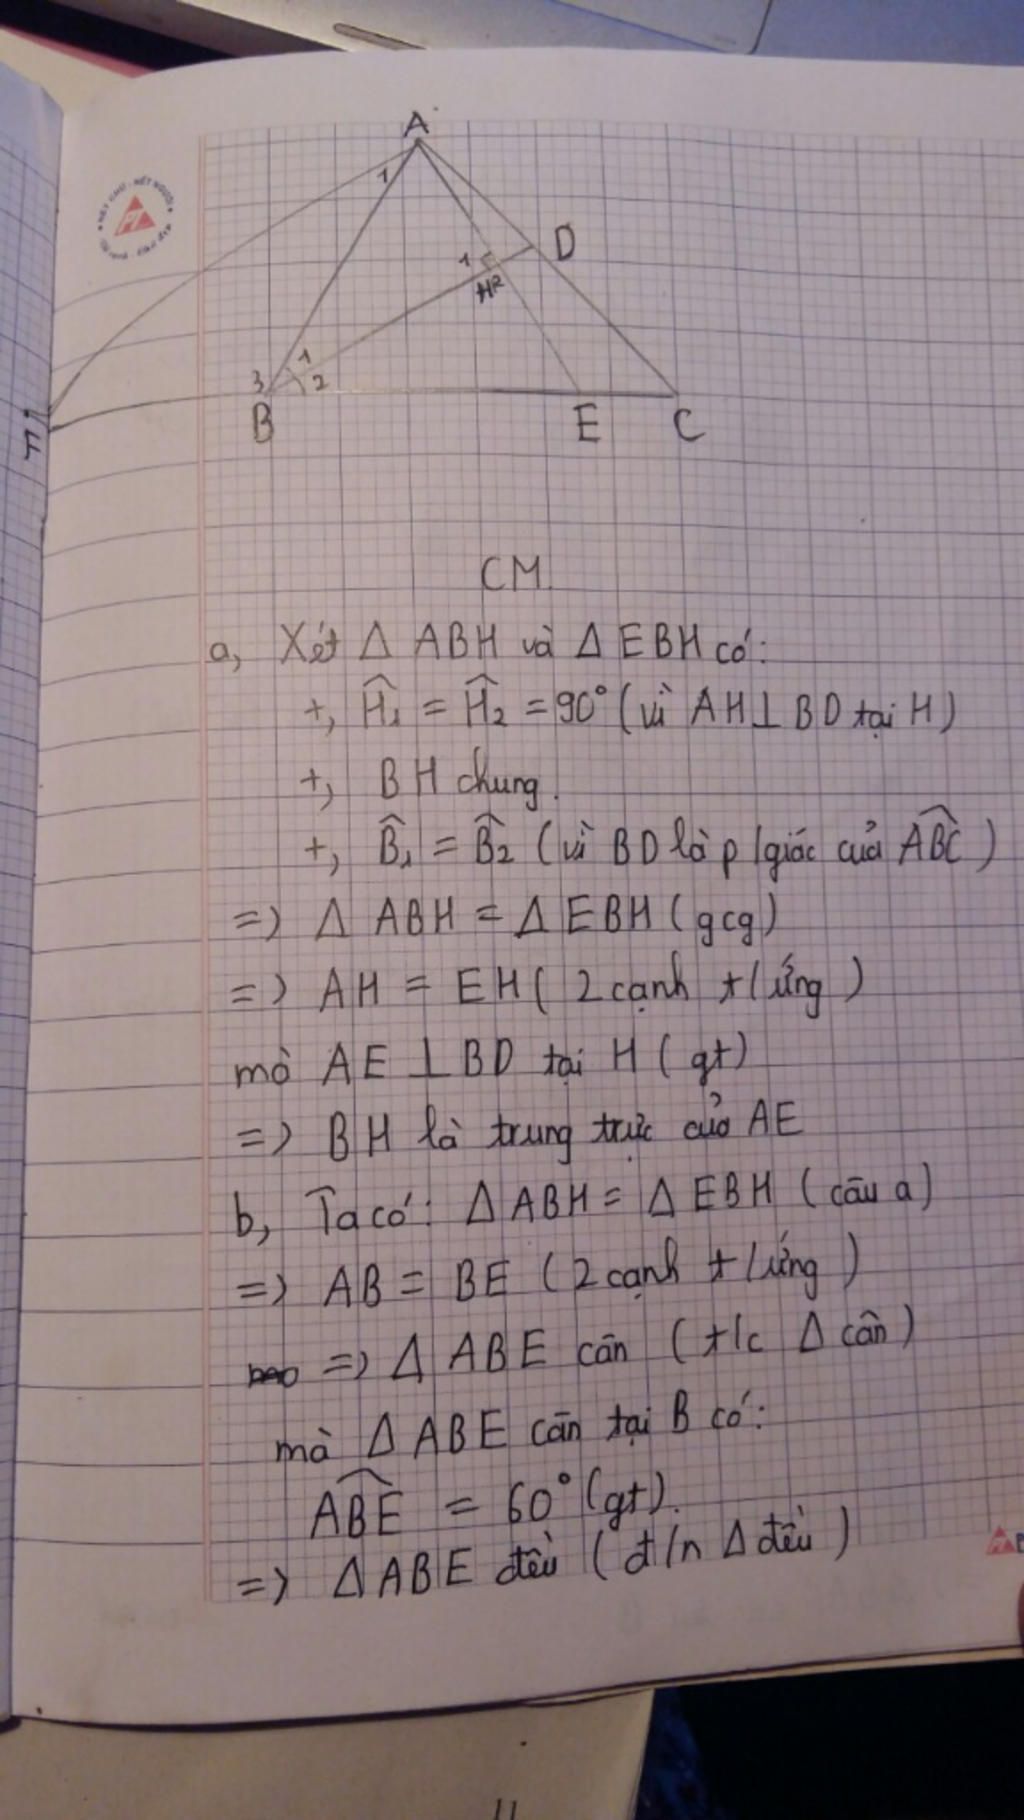 A
1
D
1
H2
1
3
2
B
E
C
F
NÉT CHỮ - NẾT NGƯỜI
PT
CM.
a, Xét Δ ABH và Δ EBH có:
+, Ĥ₁ = Ĥ₂ = 90° (vì AH ⊥ BD tại H)
+, BH chung.
+, B̂₁ = B̂₂ (vì BD là p/giác của ABĈ)
=> Δ ABH = Δ EBH (gcg)
=> AH = EH (2 cạnh t/ứng)
mà AE ⊥ BD tại H (gt)
=> BH là trung trực của AE
b, Ta có: Δ ABH = Δ EBH (câu a)
=> AB = BE (2 cạnh t/ứng)
=> Δ ABE cân (t/c Δ cân)
mà Δ ABE cân tại B có:
ABÊ = 60° (gt).
=> Δ ABE đều (đ/n Δ đều)